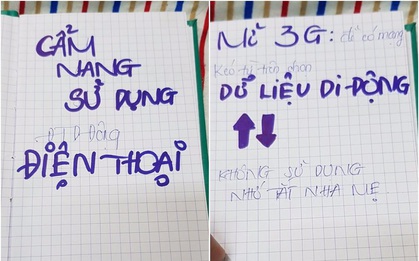 CẨM
NANG
SỬ DỤNG
ĐTDĐộng
ĐIỆN THOẠI
MỞ 3G: để có mạng
Kéo từ trên
DỮ LIỆU DI ĐỘNG
KHÔNG SỬ DỤNG
NHỚ TẮT NHA MẸ